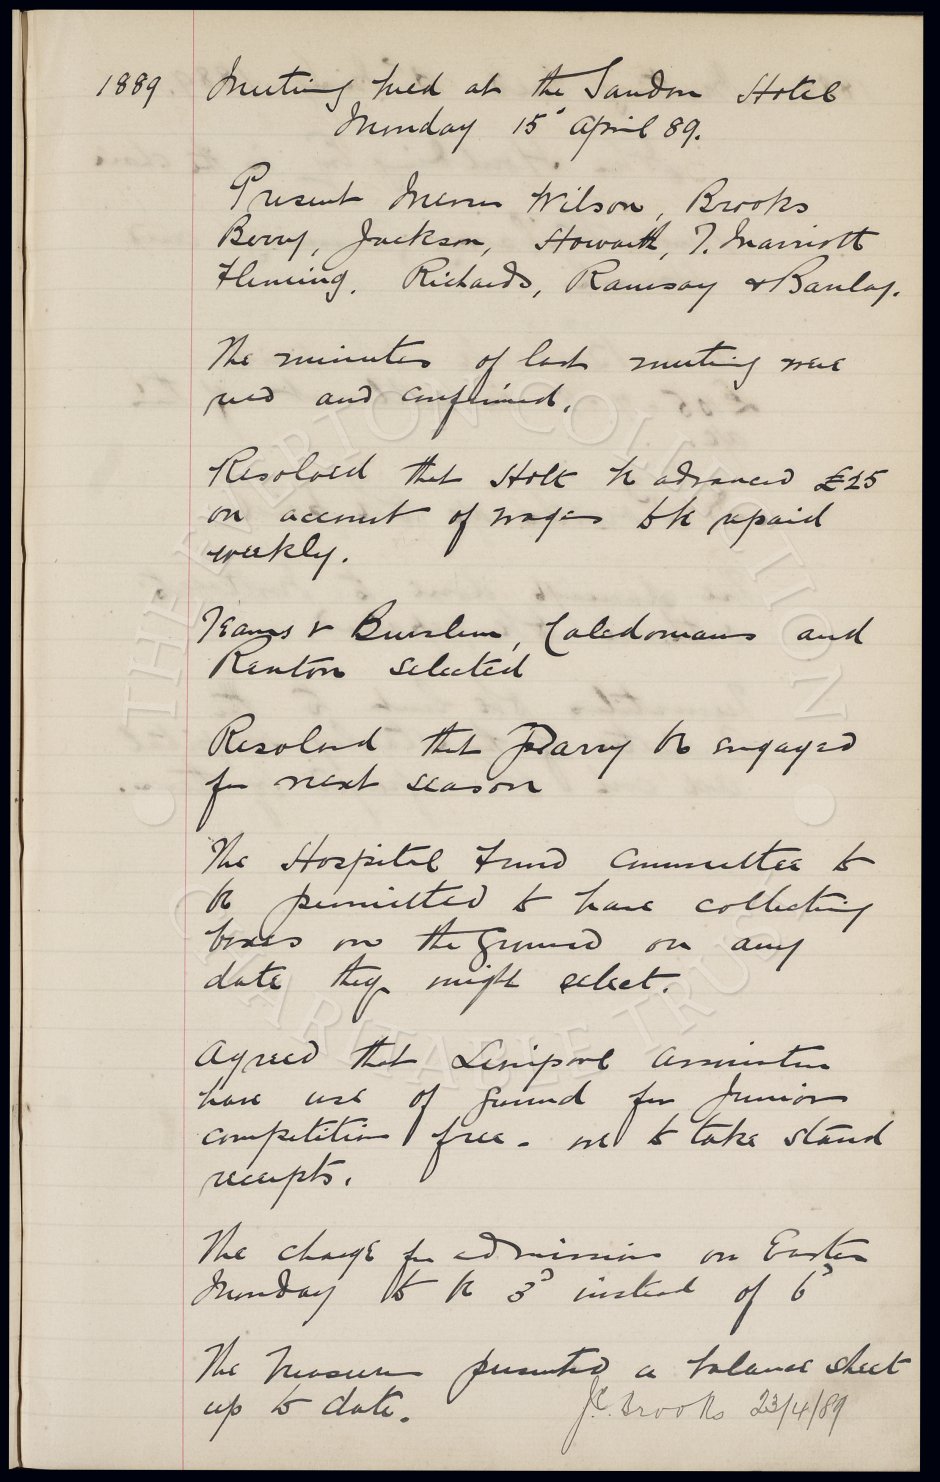 1889 Meeting held at the Sandon Hotel
Monday 15 April 89.
Present Messrs Wilson, Brooks
Berry, Jackson, Howarth, T. Marriott
Fleming, Richards, Ramsay & Barclay.
The minutes of last meeting were
read and confirmed.
Resolved that Holt be advanced £25
on account of wages to be repaid
weekly.
Teams v Burslem, Caledonians and
Renton selected
Resolved that Parry be engaged
for next season
The Hospital Fund Committee to
be permitted to have collecting
boxes on the Ground on any
date they might select.
Agreed that Liverpool Association
have use of ground for Junior
competition free - we to take stand
receipts.
The charge for admission on Easter
Monday to be 3d instead of 6d
The Treasurer presented a balance sheet
up to date.
J.C. Brooks 23/4/89
THE EVERTON COLLECTION
CHARITABLE TRUST